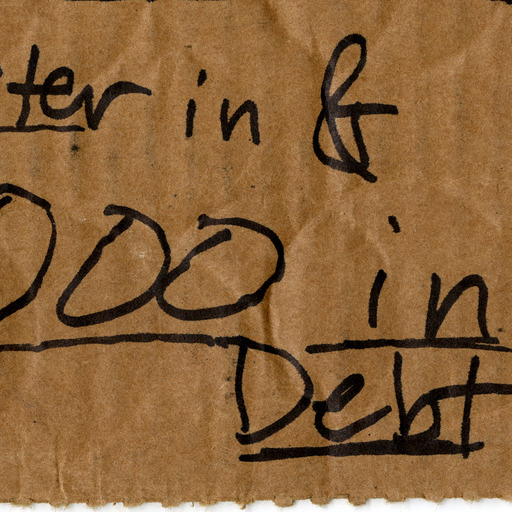 ter in &
000 in
Debt